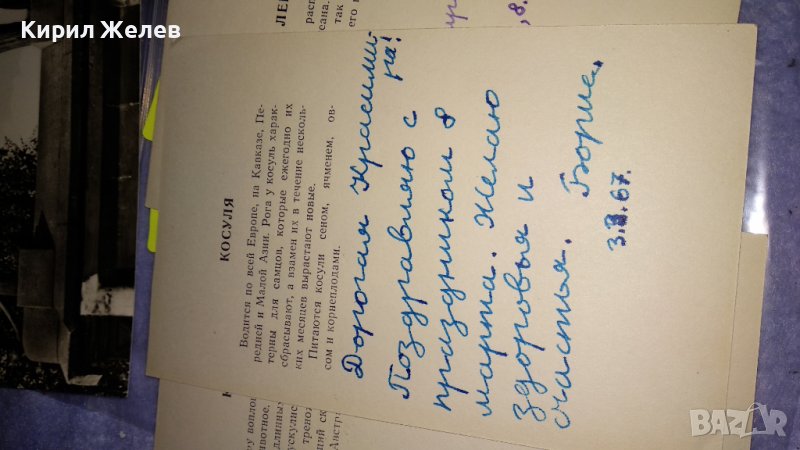 Кирил Желев
КОСУЛЯ
Водится по всей Европе, на Кавказе, Пе-
редней и Малой Азии. Рога у косуль харак-
терны для самцов, которые ежегодно их
сбрасывают, а взамен их в течение несколь-
ких месяцев вырастают новые.
Питаются косули сеном, ячменем, ов-
сом и корнеплодами.
Дорогая Красими-
ра!
Поздравляю с
праздником 8
марта. Желаю
здоровья и
счастья. Борис.
3.3.67.
BAZAR